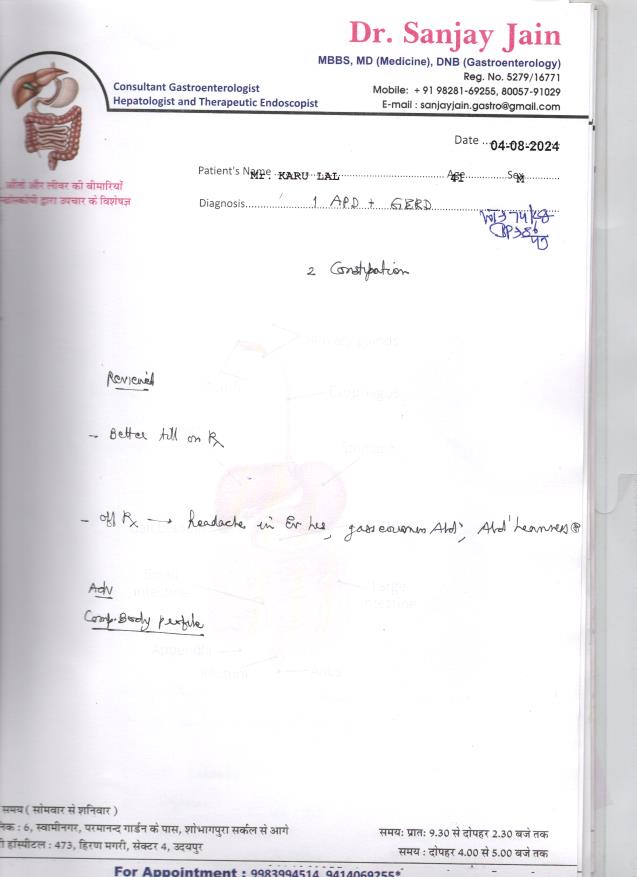 Dr. Sanjay Jain
MBBS, MD (Medicine), DNB (Gastroenterology)
Reg. No. 5279/16771
Consultant Gastroenterologist
Mobile: + 91 98281-69255, 80057-91029
Hepatologist and Therapeutic Endoscopist
E-mail : sanjayjain.gastro@gmail.com
Date ... 04-08-2024
Patient's Name Mr. KARU LAL Age 41 Sex M
आँतों और लीवर की बीमारियों
द्वारा उपचार के विशेषज्ञ
Diagnosis 1 APD + GERD
2 Constipation
Reviewed
- Better till on Rx
- Off Rx → headache in
Adv
Comp. Body profile
समय ( सोमवार से शनिवार )
6, स्वामीनगर, परमानन्द गार्डन के पास, शोभागपुरा सर्कल से आगे
समय: प्रातः 9.30 से दोपहर 2.30 बजे तक
हॉस्पीटल : 473, हिरण मगरी, सेक्टर 4, उदयपुर
समय : दोपहर 4.00 से 5.00 बजे तक
For Appointment : 9983994514, 9414069255*